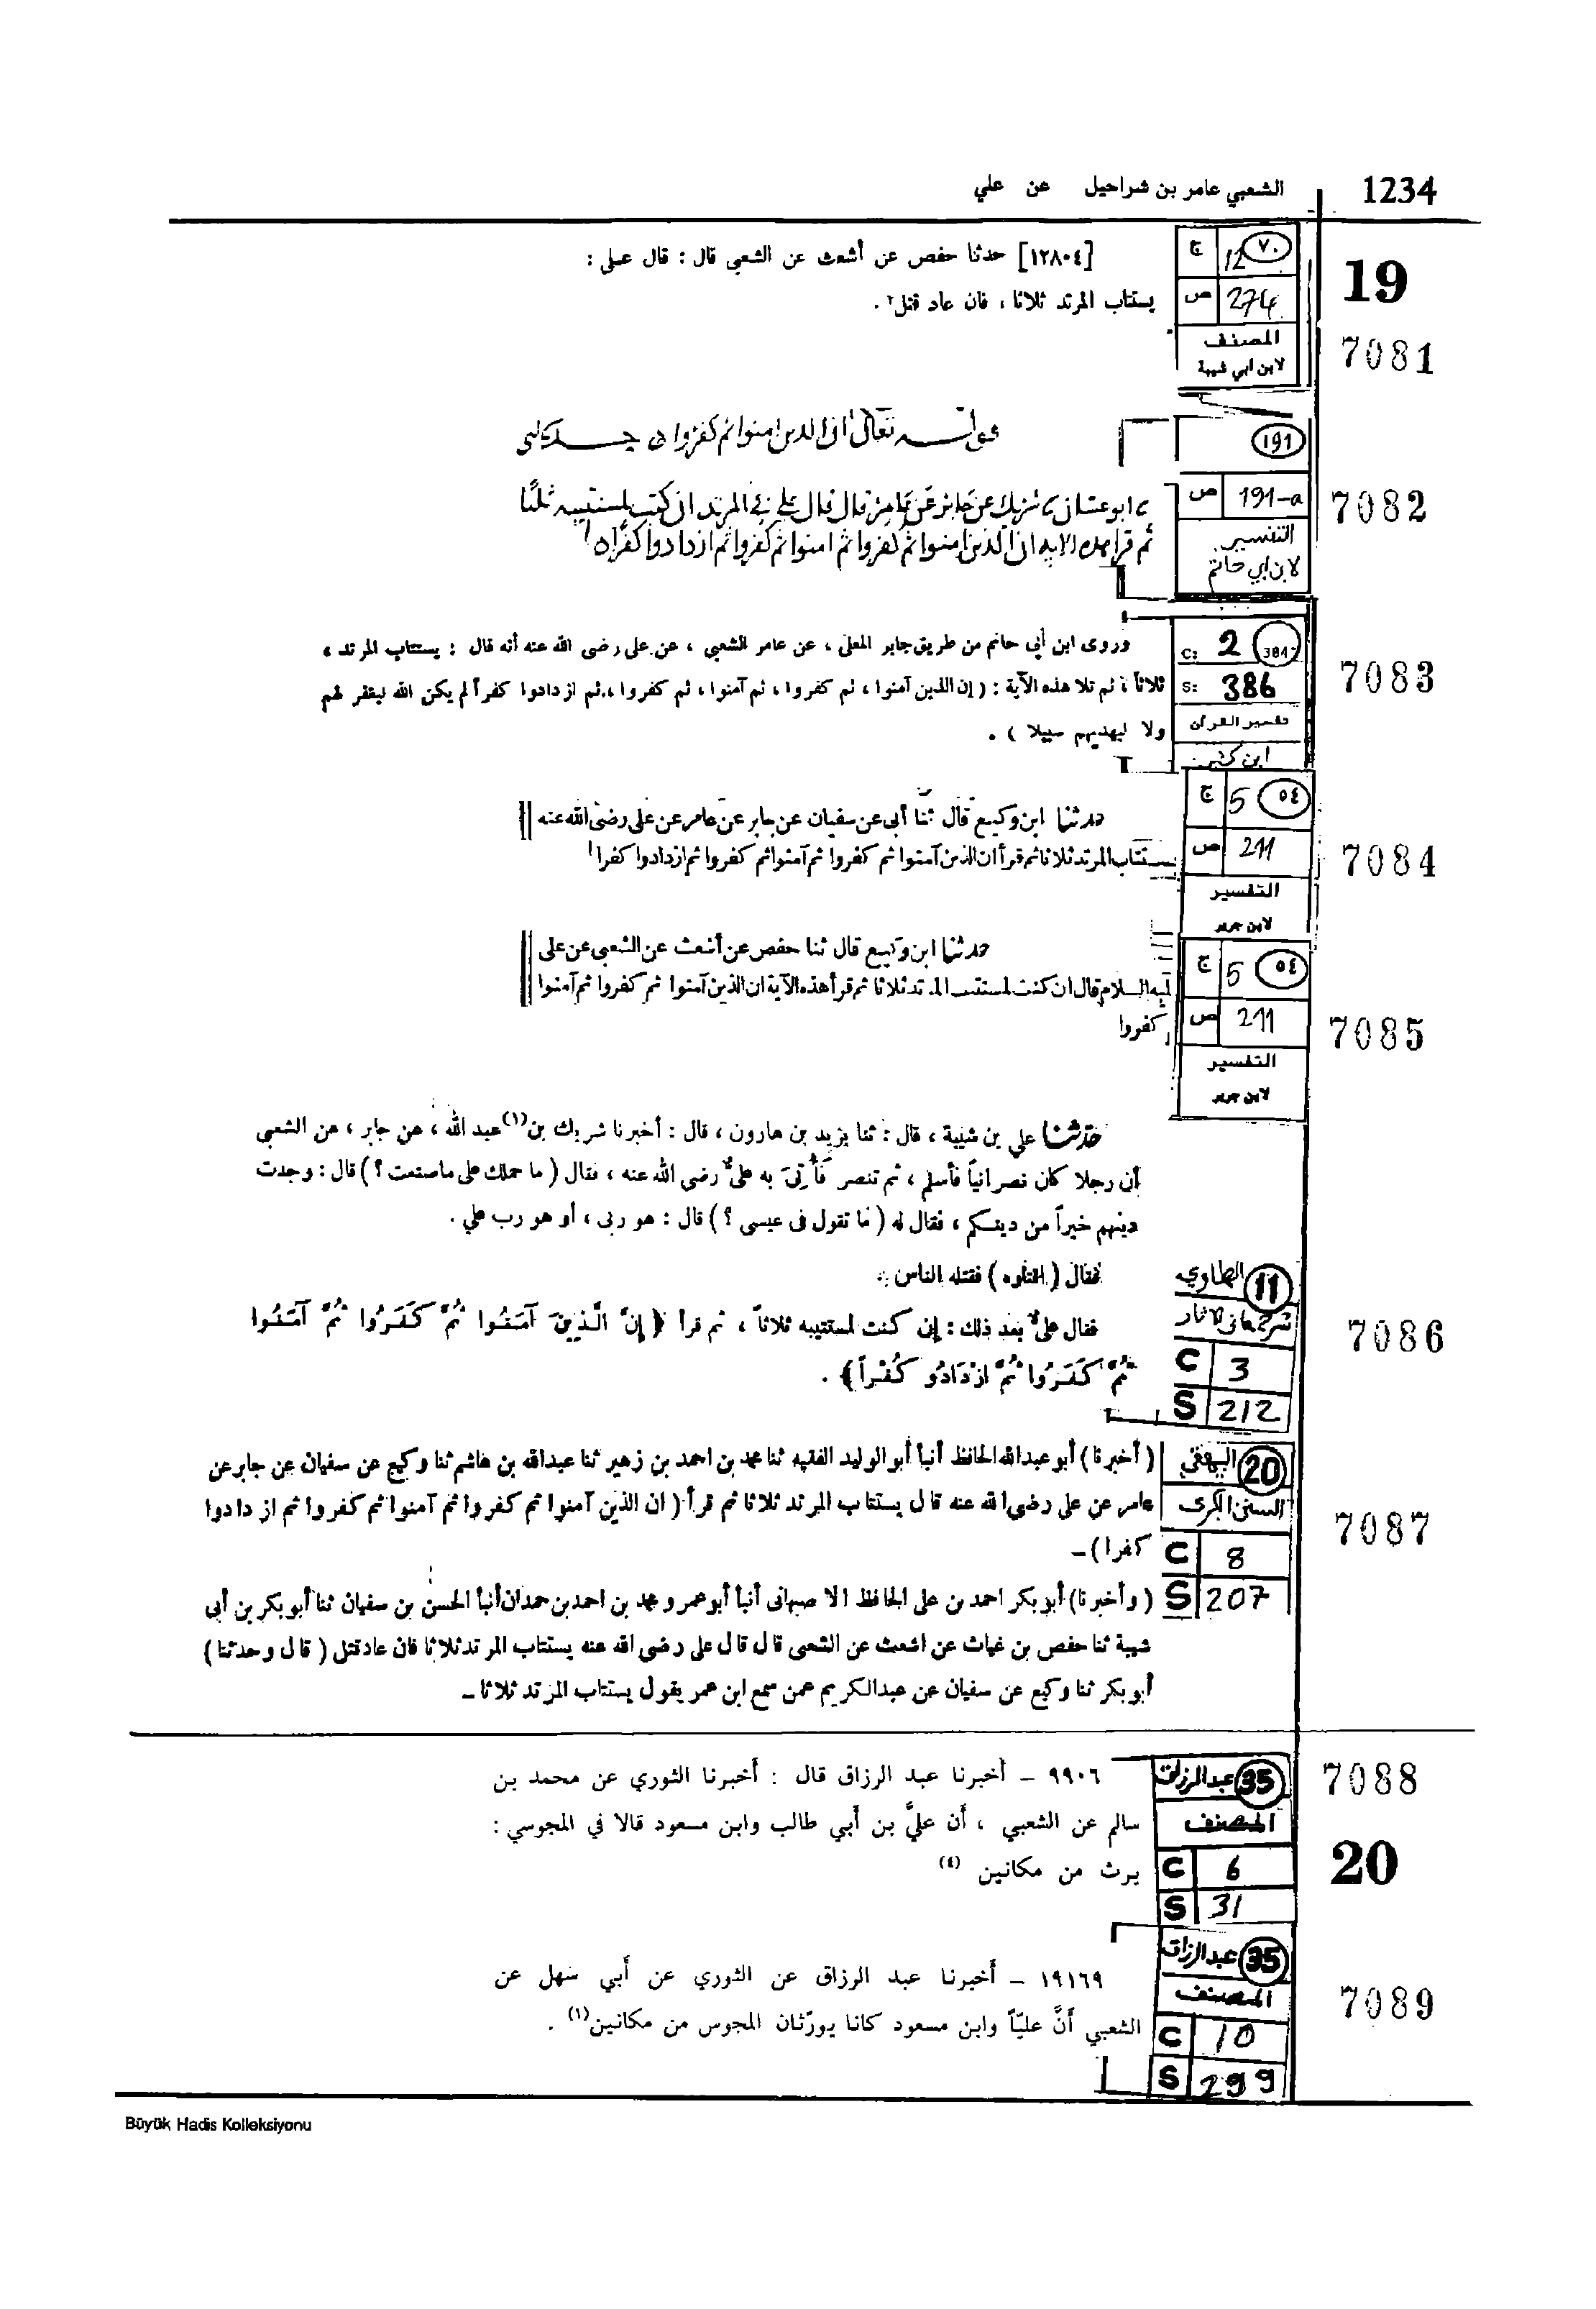 الشعبي عامر بن شراحيل عن علي
1234
19
7081
ج 12 ٧٠
ص 274
المصنف
لابن ابي شيبة
[١٢٨٠٤] حدثنا حفص عن أشعث عن الشعبي قال : قال على :
يستتاب المرتد ثلاثا ، فان عاد قتل٢ .
7082
191
ص 191-a
التفسير
لابن ابي حاتم
تعالى ان الذين امنوا ثم كفروا
ابو غسان شريك عن جابر عن عامر قال قال علي في المرتد ان كنت لمستتيبه ثلثا
ثم قرا هذه الايه ان الذين امنوا ثم كفروا ثم امنوا ثم كفروا ثم ازدادوا كفرا
7083
C: 2 384
S: 386
تفسير القرآن
ابن كثير
وروى ابن أبي حاتم من طريق جابر المعلى ، عن عامر الشعبي ، عن على رضى الله عنه أنه قال : يستتاب المرتد ،
ثلاثاً ، ثم تلا هذه الآية : ( إن الذين آمنوا ، ثم كفروا ، ثم آمنوا ، ثم كفروا ، ثم ازدادوا كفرا لم يكن الله ليغفر لهم
ولا ليهديهم سبيلا ) .
7084
ج 5 ٥٤
ص 211
التفسير
لابن جرير
حدثنا ابن وكيع قال ثنا أبى عن سفيان عن جابر عن عامر عن على رضى الله عنه
يستتاب المرتد ثلاثا ثم قرأ ان الذين آمنوا ثم كفروا ثم آمنوا ثم كفروا ثم ازدادوا كفرا
7085
ج 5 ٥٤
ص 211
التفسير
لابن جرير
حدثنا ابن وكيع قال ثنا حفص عن أشعث عن الشعبى عن على
ليه السلام قال ان كنت لمستتيب المرتد ثلاثا ثم قرأ هذه الآية ان الذين آمنوا ثم كفروا ثم آمنوا
كفروا
7086
11 الطحاوي
شرح معاني الاثار
C 3
S 212
حدثنا علي بن شيبة ، قال : ثنا يزيد بن هارون ، قال : أخبرنا شريك بن(١) عبد الله ، عن جابر ، عن الشعبي
أن رجلا كان نصرانياً فأسلم ، ثم تنصر فَأُتِيَ به علىٌّ رضى الله عنه ، فقال ( ما حملك على ما صنعت ؟ ) قال : وجدت
دينهم خيراً من دينكم ، فقال له ( ما تقول فى عيسى ؟ ) قال : هو ربى ، أو هو رب علي .
فقال ( اقتلوه ) فقتله الناس .
فقال علىٌّ بعد ذلك : إن كنت لمستتيبه ثلاثاً ، ثم قرأ ﴿ إِنَّ الَّذِينَ آمَنُوا ثُمَّ كَفَرُوا ثُمَّ آمَنُوا
ثُمَّ كَفَرُوا ثُمَّ ازْدَادُو كُفْراً﴾ .
7087
20 البيهقي
السنن الكبرى
C 8
S 207
( أخبرنا ) أبو عبدالله الحافظ أنبأ أبو الوليد الفقيه ثنا محمد بن احمد بن زهير ثنا عبدالله بن هاشم ثنا وكيع عن سفيان عن جابر عن
عامر عن على رضى الله عنه قال يستتاب المرتد ثلاثا ثم قرأ ( ان الذين آمنوا ثم كفروا ثم آمنوا ثم كفروا ثم ازدادوا
كفرا ) –
( وأخبرنا) أبو بكر احمد بن على الحافظ الاصبهانى أنبأ أبو عمرو محمد بن احمد بن حمدان أنبأ الحسن بن سفيان ثنا أبو بكر بن أبى
شيبة ثنا حفص بن غياث عن اشعث عن الشعبى قال قال على رضى الله عنه يستتاب المرتد ثلاثا فان عاد قتل ( قال وحدثنا )
أبو بكر ثنا وكيع عن سفيان عن عبدالكريم عمن سمع ابن عمر يقول يستتاب المرتد ثلاثا –
7088
20
35 عبد الرزاق
المصنف
C 6
S 31
٩٩٠٦ – أخبرنا عبد الرزاق قال : أخبرنا الثوري عن محمد بن
سالم عن الشعبي ، أن عليَّ بن أبي طالب وابن مسعود قالا في المجوسي :
يرث من مكانين (٤)
7089
35 عبد الرزاق
المصنف
C 10
S 299
١٩١٦٩ – أخبرنا عبد الرزاق عن الثوري عن أبي سهل عن
الشعبي أنَّ عليّاً وابن مسعود كانا يورّثان المجوس من مكانين(١) .
Büyük Hadis Kolleksiyonu